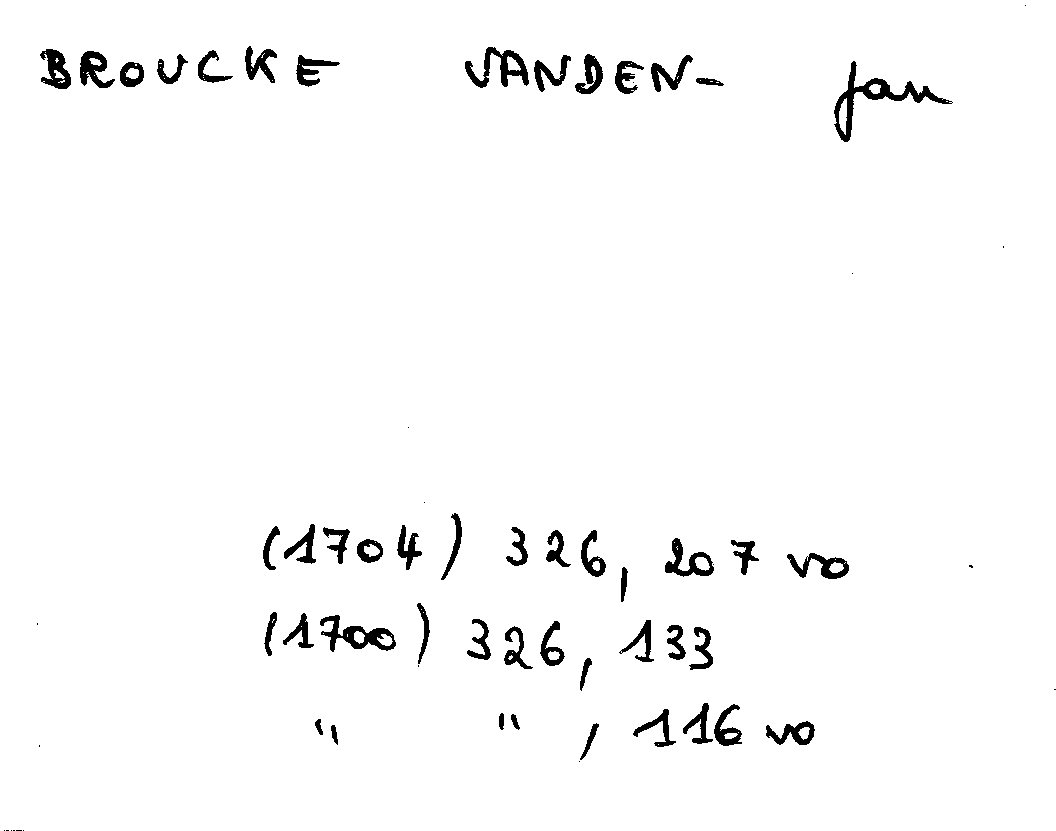 BROUCKE VANDEN- Jan
(1704) 326, 207 vo
(1700) 326, 133
" " , 116 vo